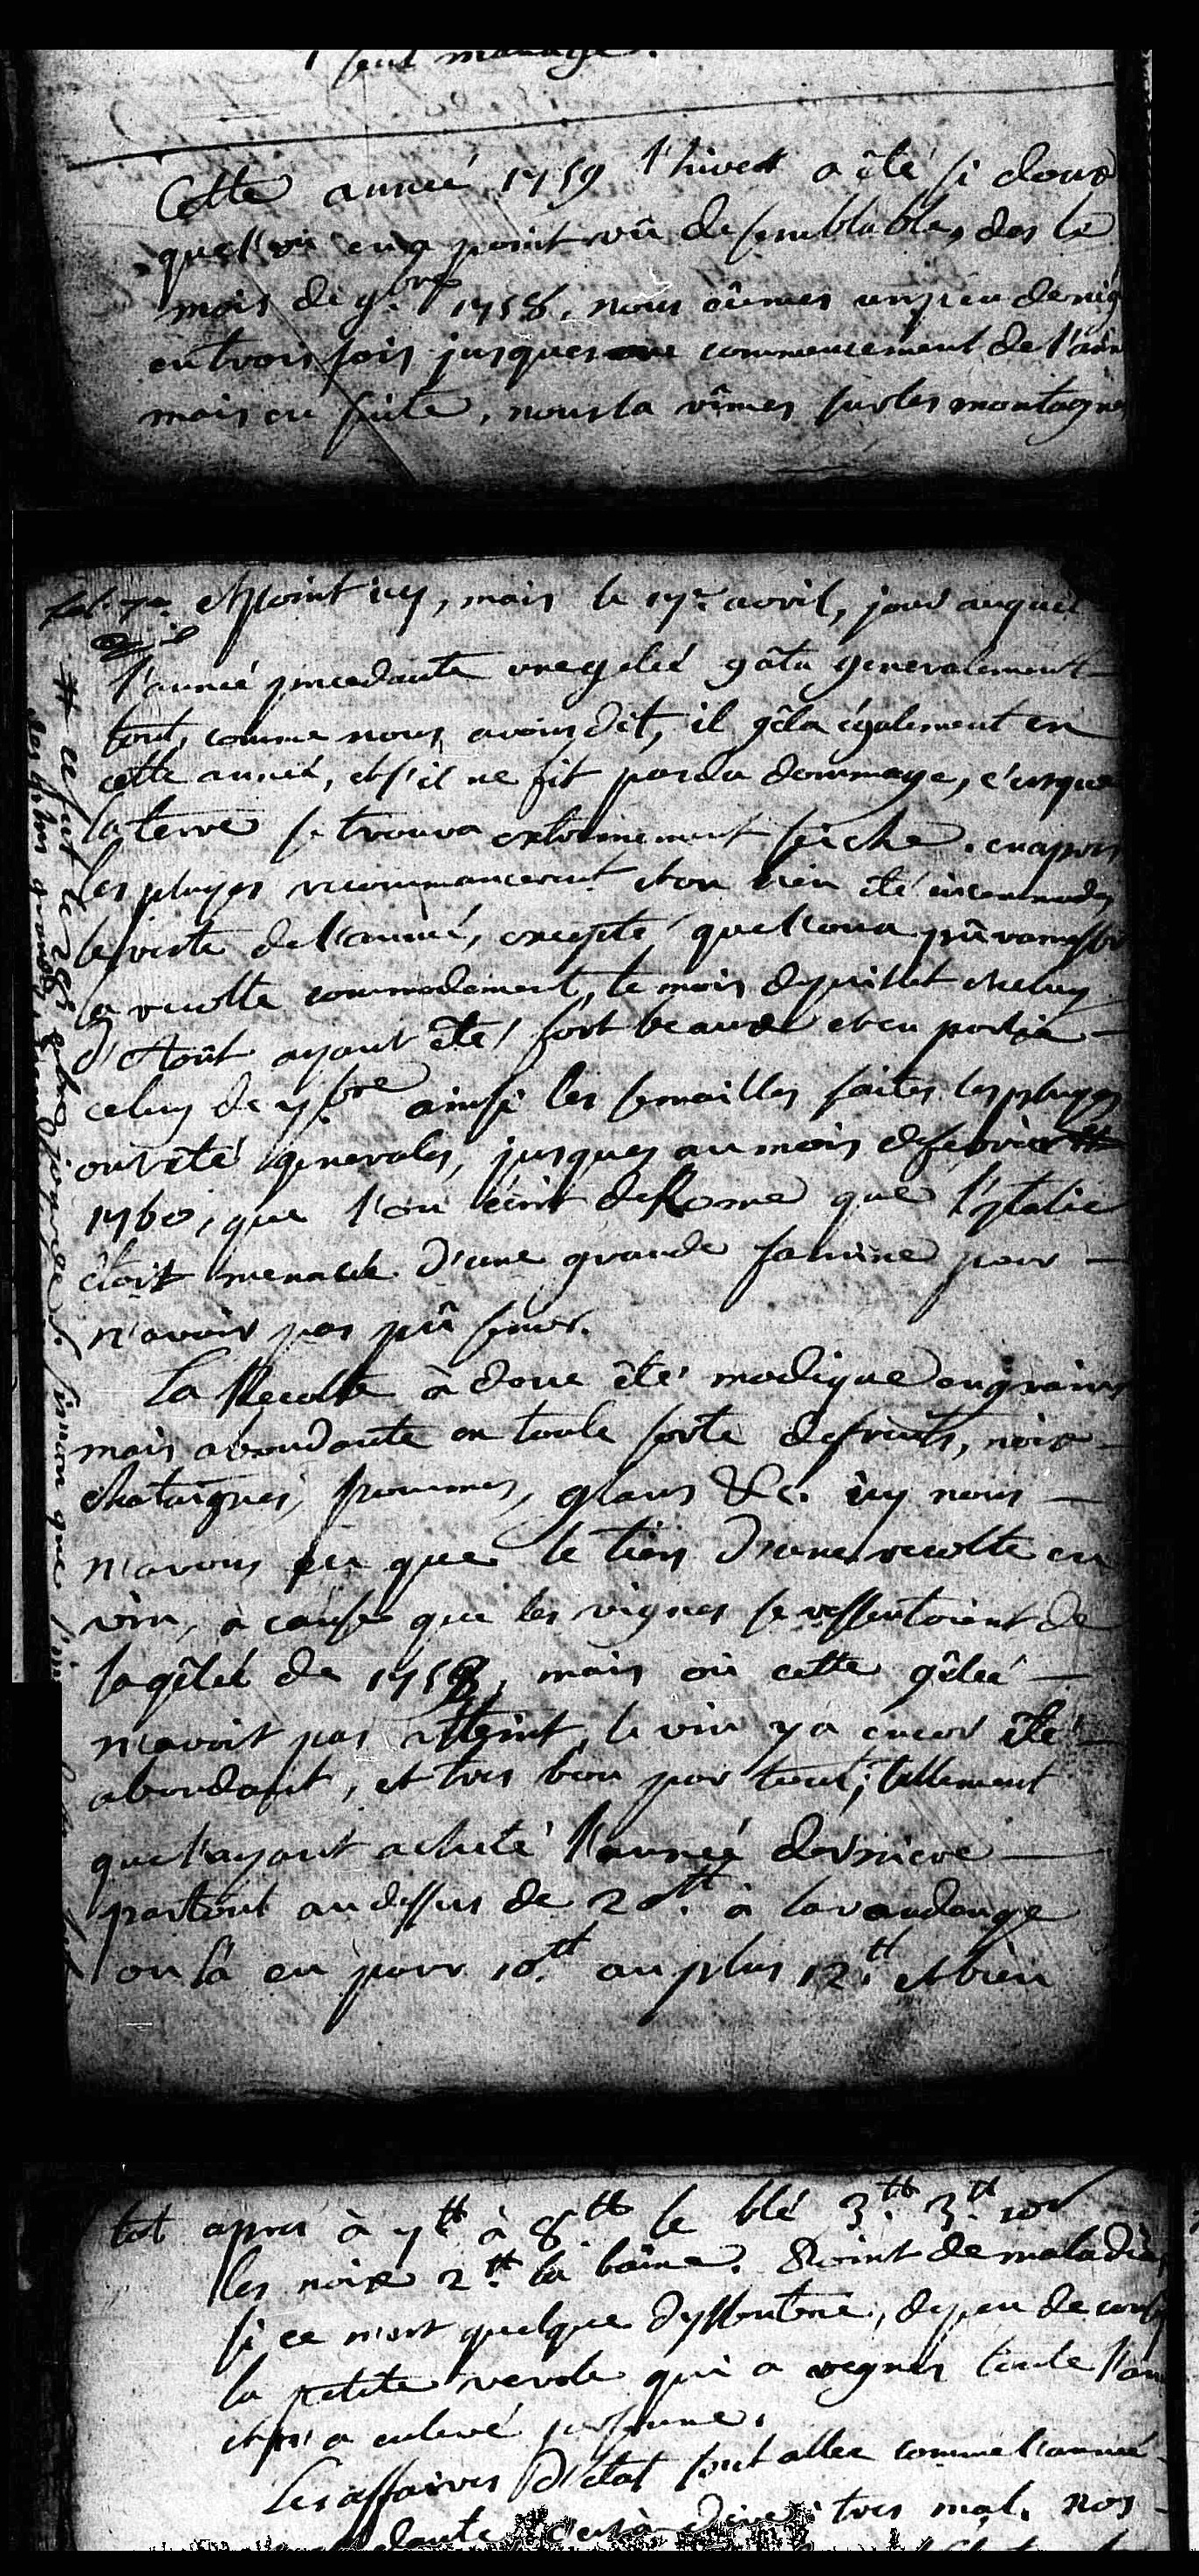 1 seul mariage.
Cette année 1759 l'hiver a êté si doux
que l'on en a point vû de semblable, des le
mois de 9.bre 1758, nous eûmes un peu de neig
en trois fois jusques au commencement de l'ann
mais en suite, nous la vîmes sur les montagnes
et point icy, mais le 17.e avril, jour auquel
l'année precedante une gelée gâta generalement
tout, comme nous avons dit, il gêla également en
cette année, et s'il ne fit pas du dommage, c'est que
la terre se trouva extremement seiche. en apres
les pluyes recommancerent et on bien êté incommodes
le reste de l'année, excepté que l'on a pû ramasser
la recolte commodement, le mois de juillet et celuy
d'Aoüt ayant êté fort beaux et en partie
celuy de 7.bre ainsi les semailles faites les pluyes
ont êté generales, jusques au mois de fevrier
1760, que l'on écrit de Rome que l'ytalie
étoit menacée d'une grande famine pour
n'avoir pas pû semer.
La Recolte à donc êté modique en grains
mais abondante en toute sorte de fruits, noix
chataignes, pommes, glans &c. icy nous
n'avons eu que le tiers d'une recolte en
vin, à cause que les vignes se ressentoient de
la gêlée de 1758, mais où cette gêlée
n'avoit pas atteint, le vin y a encor êté
abondant, et tres bon par tout; tellement
que l'ayant acheté l'année derniere
partout au dessus de 20.tt à la vandange
on l'a eu pour 10.tt au plus 12.tt et bien
tot apres à 7tt à 8tt le blé 3.tt 3.tt 10s
les noix 2.tt la baine. Point de maladies
si ce n'est quelque dyssenterie, de peu de cons
la petite verole qui a regné toute l'an
et n'a enlevé personne.
Les affaires d'état sont allée comme l'année
dante c'est à dire: tres mal. nos
# ce fut le 28e